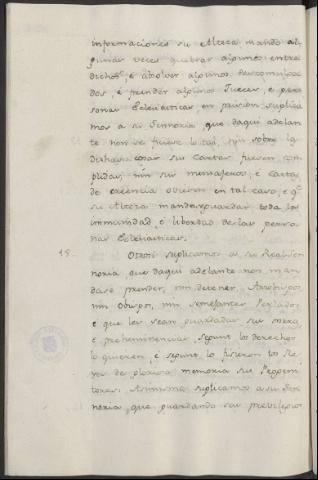 informaciones su Alteza mandó al
gunas veces quebrar algunos entre
dichos, é absolver algunos descomulga
dos, é prender algunos Jueces, é per
sonas Eclesiásticas en prision suplica
mos a su Sennoria que daqui adelan
te non se ficiese lo tal, nin sobre la
dicha cosas sus Cartas fuesen com
plidas, nin sus mensageros, é cartas
de creencia oviesen en tal caso, e q.^e
su Alteza mandase guardar toda la
inmunidad, é libertad de las perso
nas Eclesiasticas.
15. Otrosi suplicamos a su Real Sen
noria que daqui adelante non man
dase prender, nin detener, Arzobispos,
nin Obispos, nin semejantes Perlados
é que les sean guardadas sus
é preheminencias, segunt los derechos
lo quieren, é segunt lo ficieron los Re
yes de gloriosa memoria sus Progeni
tores. Asimismo suplicamos a su Sen
noria, que guardando sus previlegios